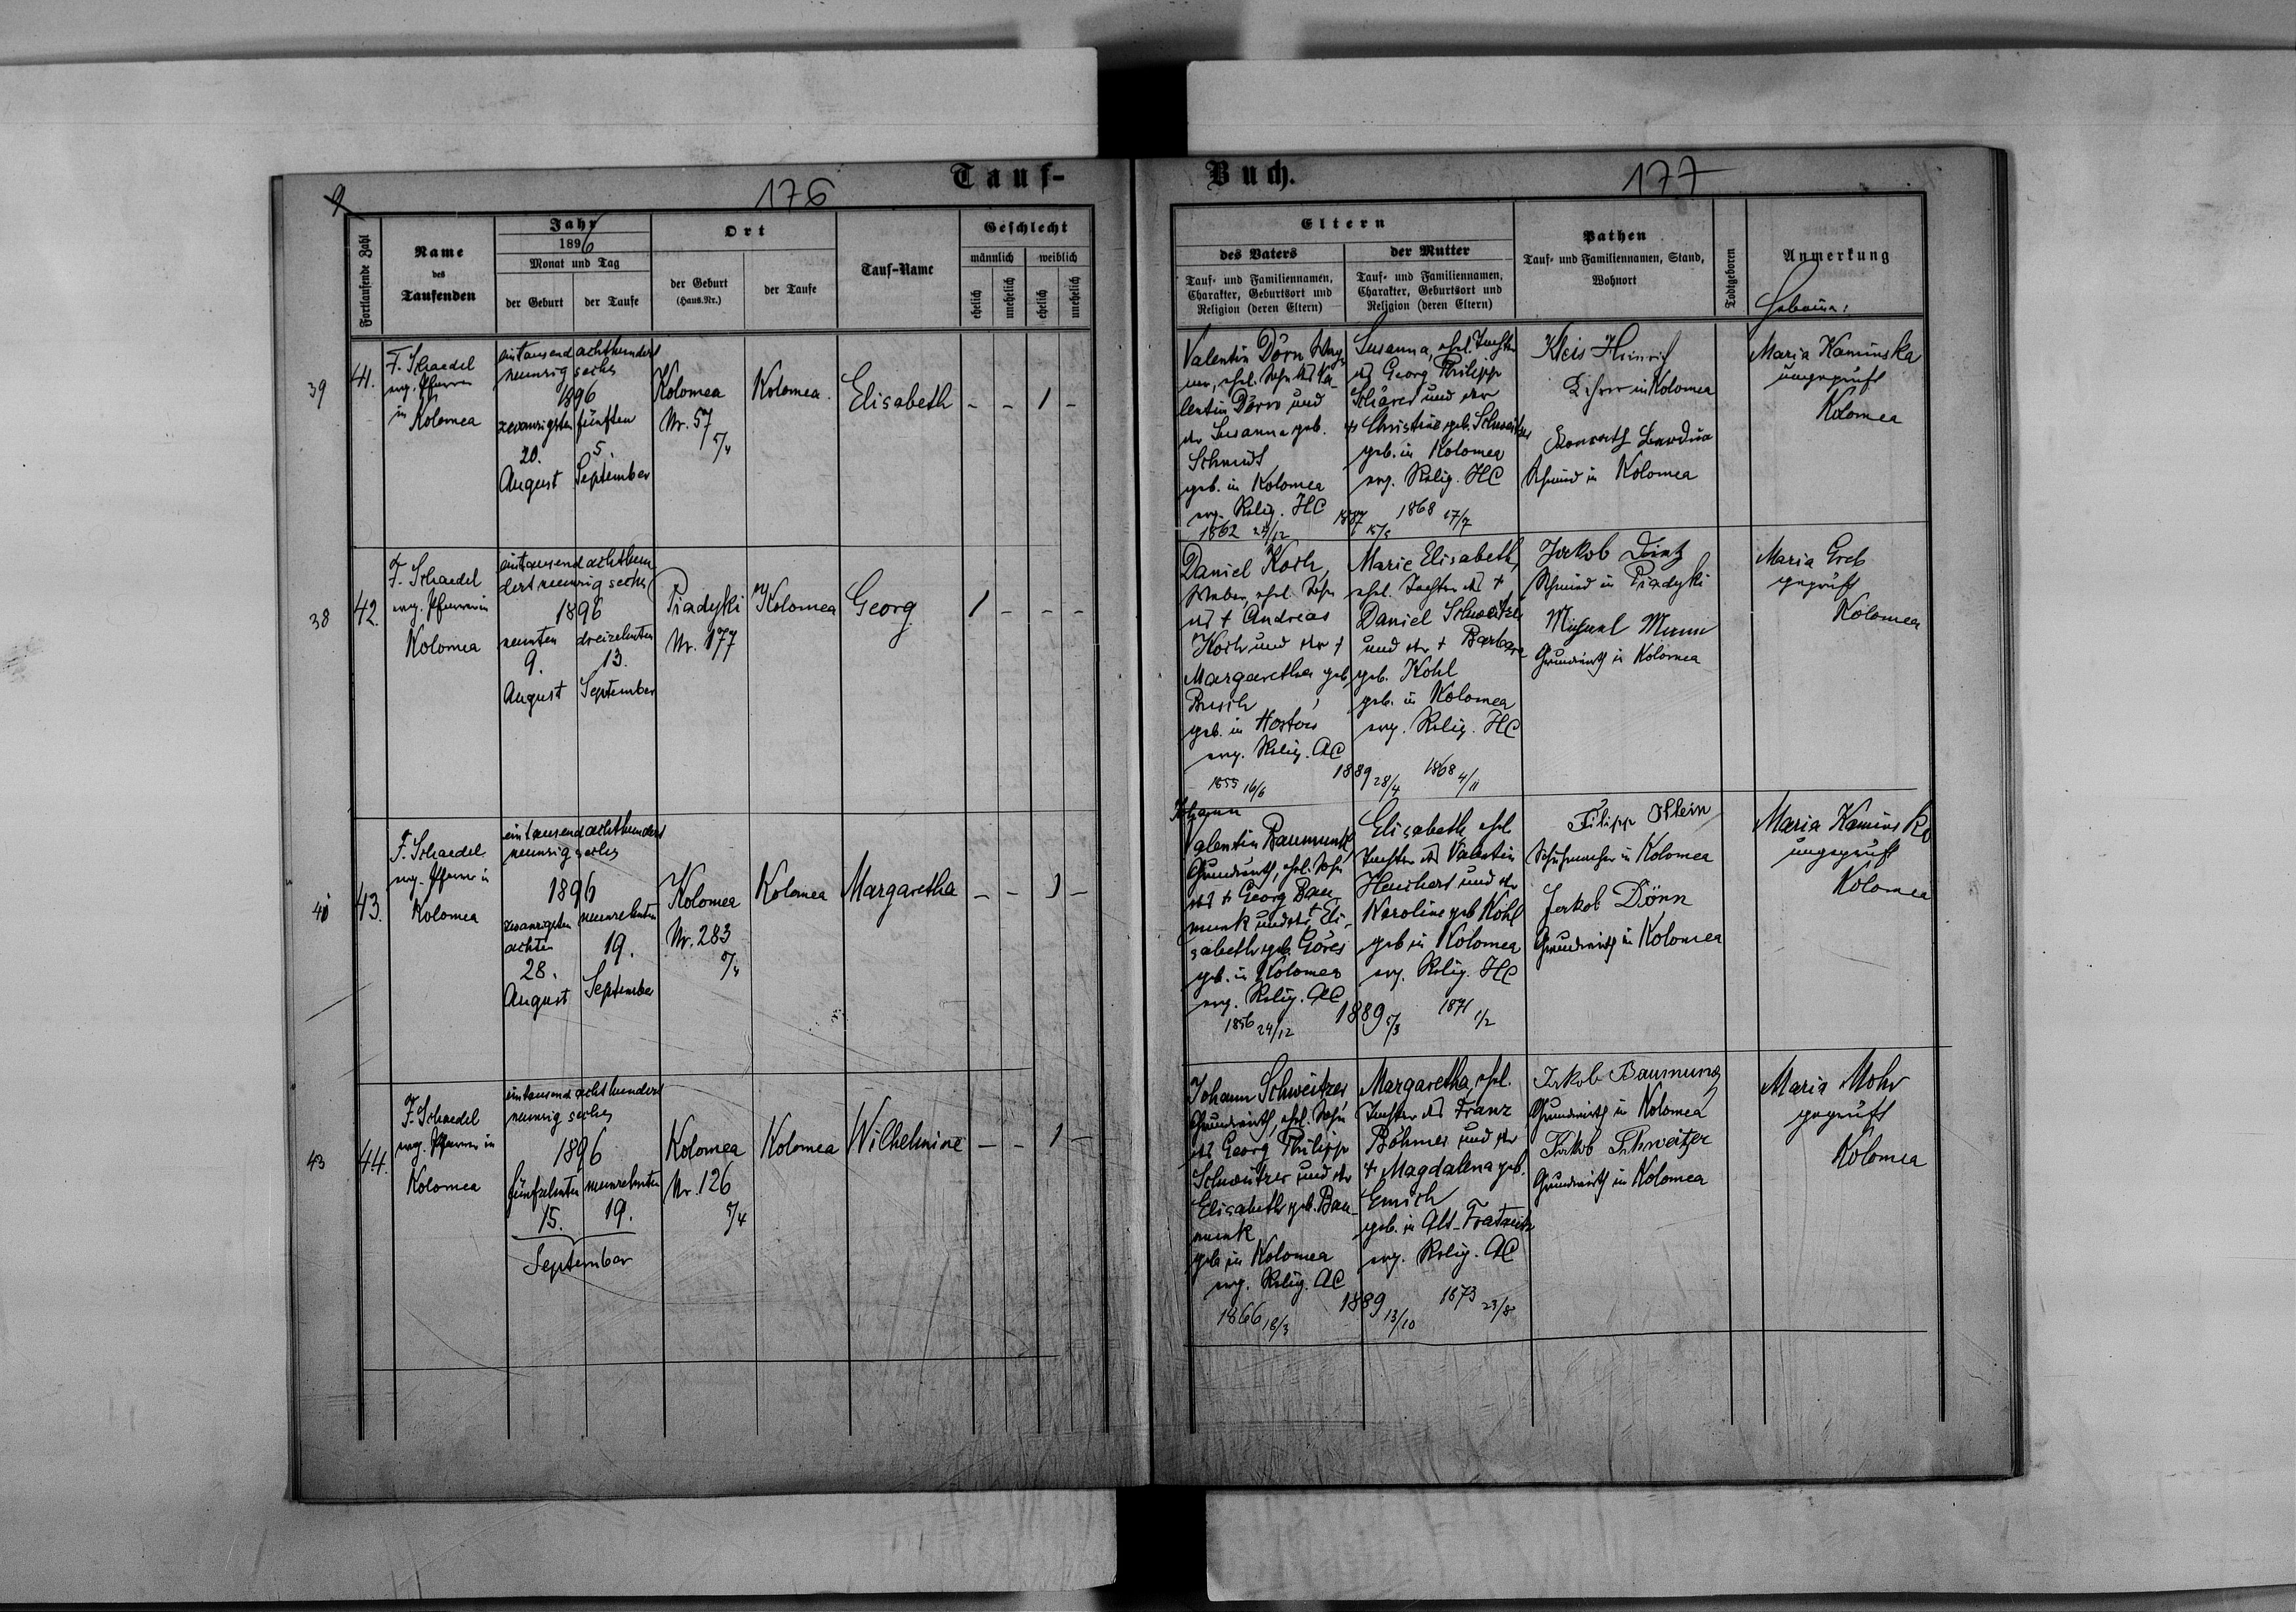 Tauf-
Buch.
176
177
Fortlaufende Zahl
Name
des
Taufenden
Jahr
1896
Monat und Tag
der Geburt
der Taufe
Ort
der Geburt
(Haus-Nr.)
der Taufe
Tauf-Name
Geschlecht
männlich
weiblich
ehelich
unehelich
ehelich
unehelich
Eltern
des Vaters
Tauf- und Familiennamen,
Charakter, Geburtsort und
Religion (deren Eltern)
der Mutter
Tauf- und Familiennamen,
Charakter, Geburtsort und
Religion (deren Eltern)
Pathen
Tauf- und Familiennamen, Stand,
Wohnort
Todtgeboren
Anmerkung
39
41.
F. Schaedel
evg. Pfarrer
in
Kolomea
eintausend achthundert
neunzig sechs
1896
zwanzigsten
20.
August
fünften
5.
September
Kolomea
Nr. 57
5/4
Kolomea.
Elisabeth
- - 1 -
Valentin Dörn Wag-
ner, ehel. Sohn des Va-
lentin Dörn und
der Susanna geb.
Schmidt
geb. in Kolomea
evg. Relig. HC
1862 24/12
Susanna, ehel. Tochter
des Georg Philipp
Schärer und der
Christine geb. Schweitzer
geb. in Kolomea
evg. Relig. HC
1887 15/5
1868 27/7
Kleis Heinrich
Lehrer in Kolomea
Schmied in Kolomea
Maria Kaminska
ungeprüft
Kolomea
38
42.
F. Schaedel
evg. Pfarrer in
Kolomea
eintausend achthun
dert neunzig sechs
1896
neunten
9.
August
dreizehnten
13.
September
Piadyki
Nr. 177
Kolomea
Georg
1 - - -
Daniel Koch,
Weber, ehel. Sohn
des † Andreas
Koch und der †
Margaretha geb.
Busch
geb. in
evg. Relig. AC
1855 16/6
Marie Elisabeth,
ehel. Tochter des †
Daniel Schweitzer
und der † Barbara
geb. Kohl
geb. in Kolomea
evg. Relig. HC
1889 28/4
1868 4/11
Jakob Dietz
Schmied in Piadyki
Michael
Grundwirth in Kolomea
Maria Greb
geprüft
Kolomea
40
43.
F. Schaedel
evg. Pfarrer in
Kolomea
eintausend achthundert
neunzig sechs
1896
zwanzigsten
achten
28.
August
neunzehnten
19.
September
Kolomea
Nr. 283
5/4
Kolomea
Margaretha
- - 1 -
Johann
Valentin Baumunk
Grundwirth, ehel. Sohn
des † Georg Bau
munk und der † Eli-
sabeth geb. Göres
geb. in Kolomea
evg. Relig. AC
1856 24/12
Elisabeth, ehel
Tochter des Valentin
Heuchert und der
Karoline geb Kohl
geb in Kolomea
evg. Relig. HC
1889 5/3
1871 1/2
Filipp Stein
Schuhmacher in Kolomea
Jakob Dönn
Grundwirth in Kolomea
Maria Kaminska
ungeprüft
Kolomea
43
44.
F. Schaedel
evg. Pfarrer in
Kolomea
eintausend achthundert
neunzig sechs
1896
fünfzehnten
15.
neunzehnten
19.
September
Kolomea
Nr. 126
5/4
Kolomea
Wilhelmine
- - 1 -
Johann Schweitzer
Grundwirth, ehel. Sohn
des Georg Philipp
Schweitzer und der
Elisabeth geb. Bau-
munk
geb in Kolomea
evg. Relig. AC
1866 18/3
Margaretha, ehel.
Tochter des Franz
Böhmer und der
† Magdalena geb.
Emich
geb. in Alt-Fratautz
evg. Relig. AC
1889 13/10
1873 23/8
Jakob Baumung
Grundwirth in Kolomea
Jakob Schweitzer
Grundwirth in Kolomea
Maria Mohr
geprüft
Kolomea